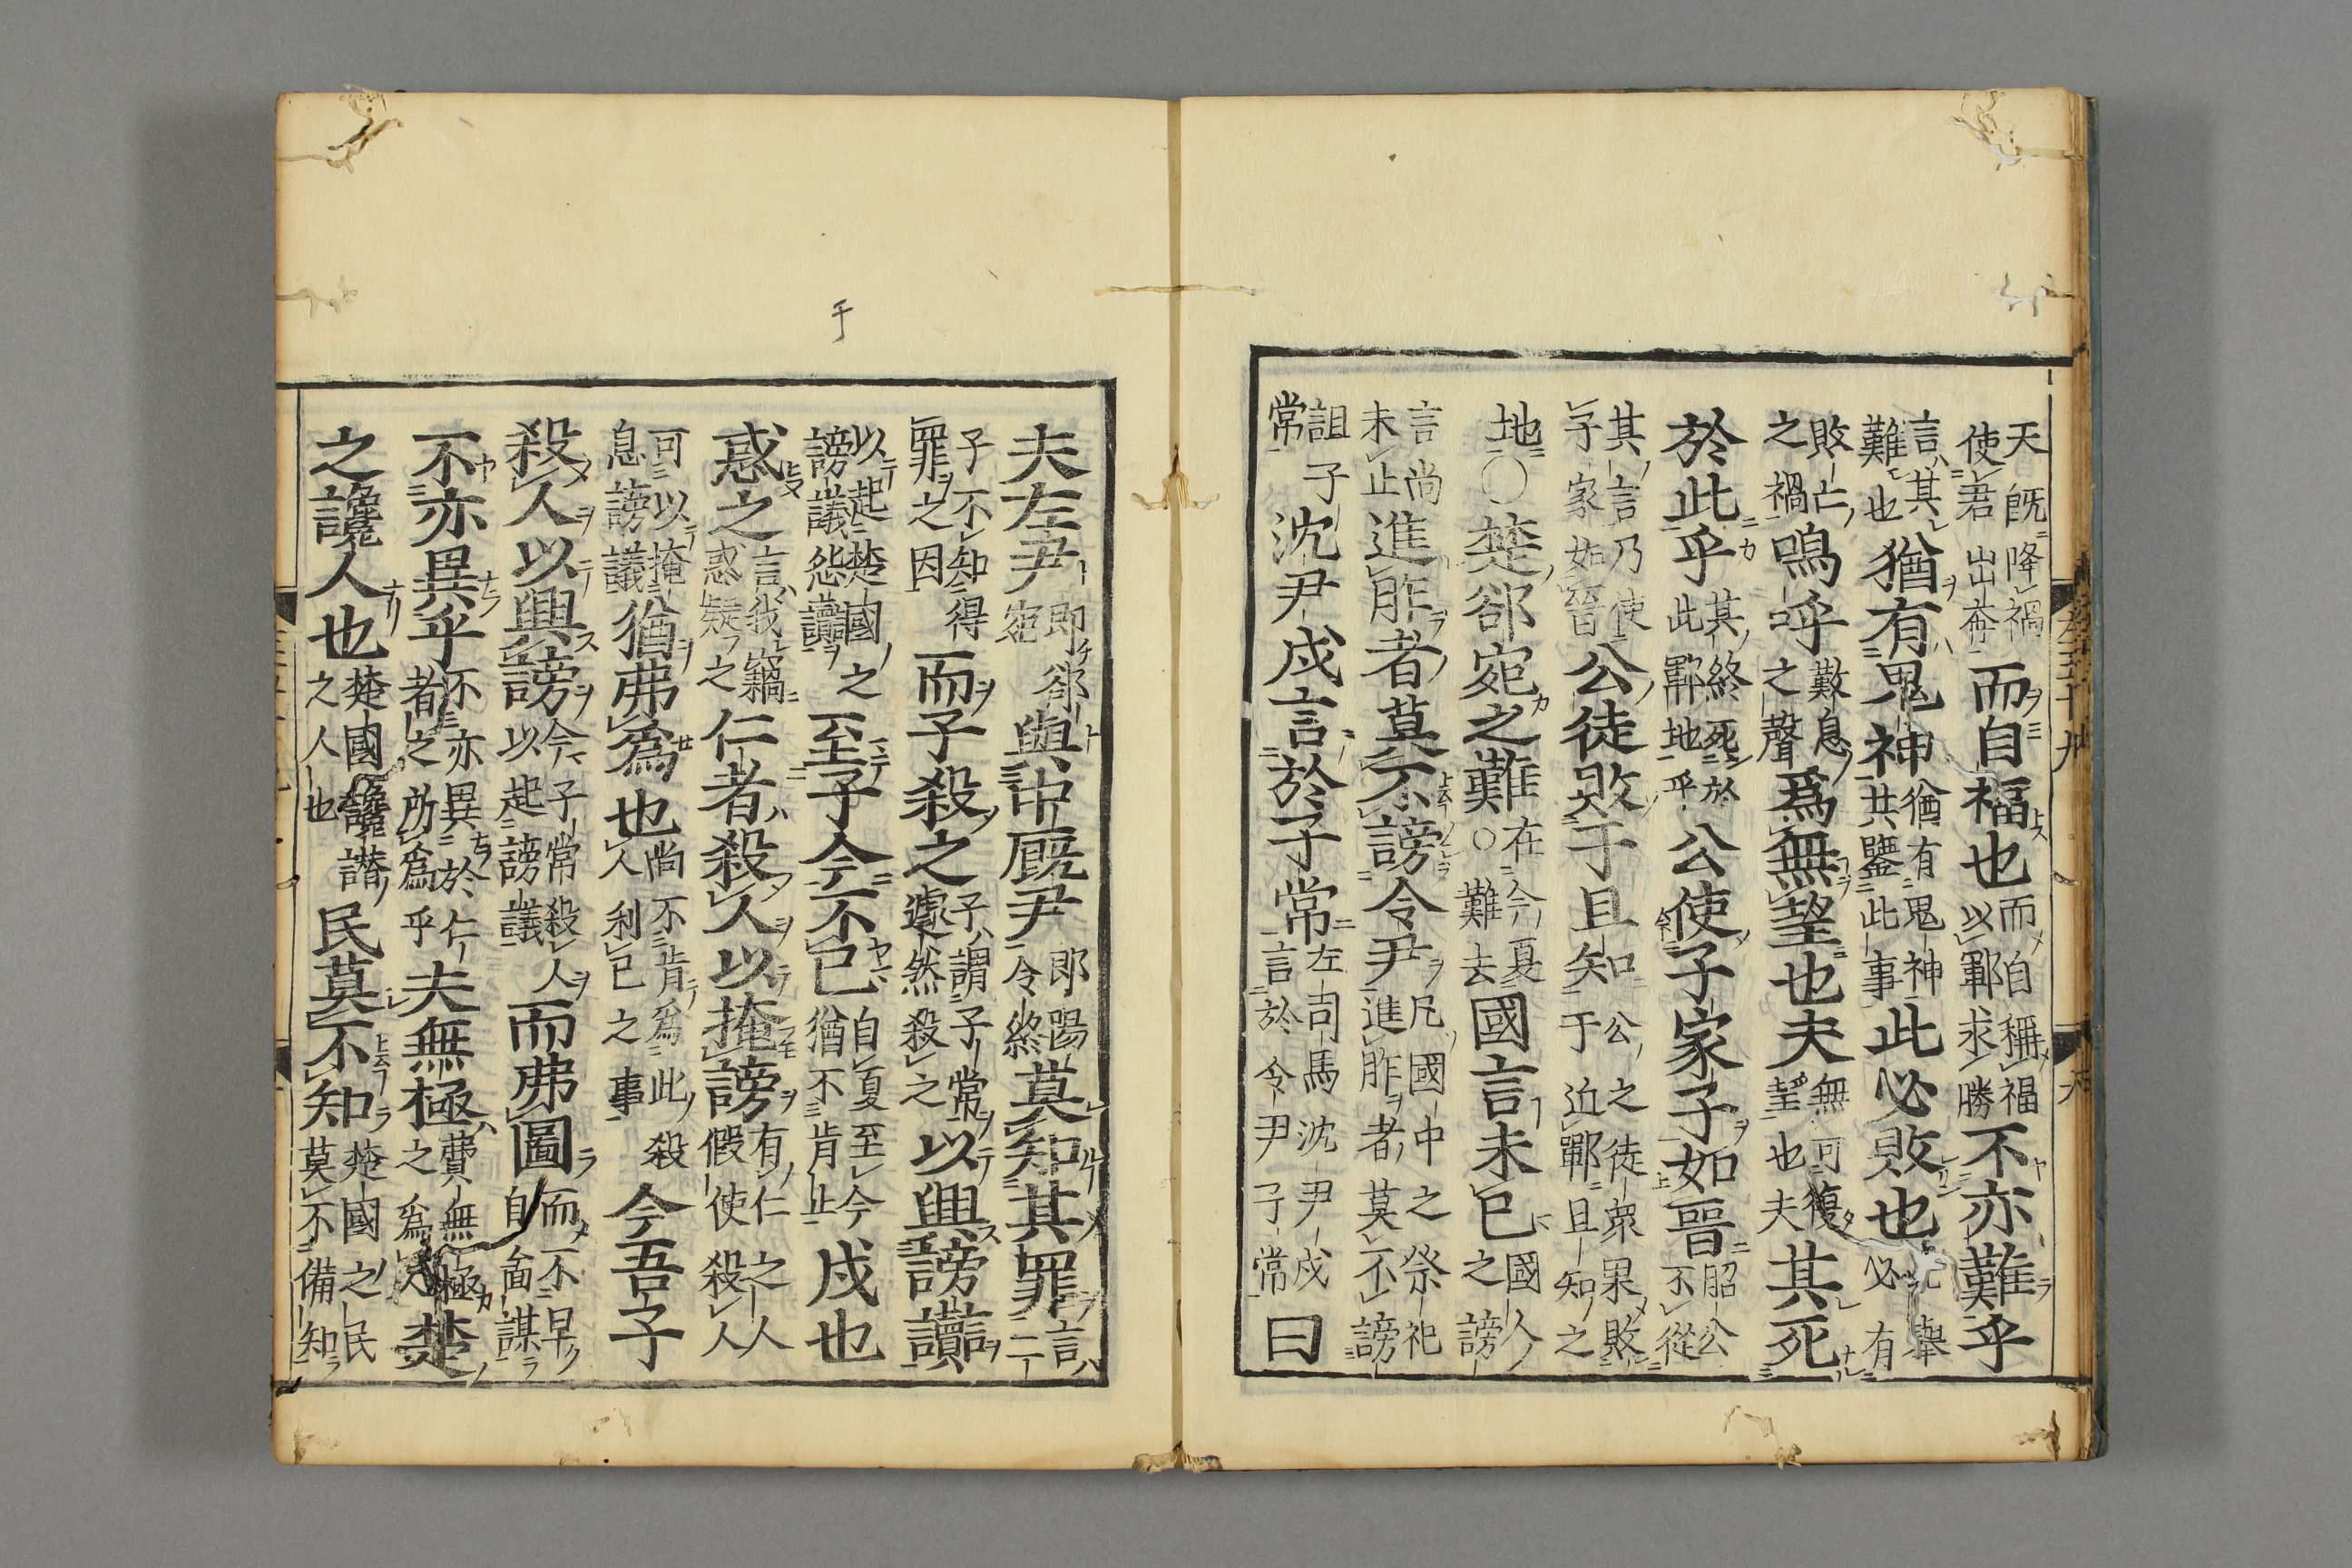 天既降禍使君出奔而自福也而自稱福以鄆求勝不亦難乎
言其難也猶有鬼神猶有鬼神共鑒此事此必敗也舉必有
敗亡之禍嗚呼歎息之聲爲無望也夫無可復望也夫其死
於此乎其終死於此鄆地乎公使子家子如晉昭公不從
其言乃使子家如晉公徒敗于且知公之徒衆果敗于近鄆且知之
地○楚郤宛之難在今夏○難去國言未已國人之謗
言尚未止進胙者莫不謗令尹凡國中之祭祀進胙者莫不謗
詛子常沈尹戌言於子常左司馬沈尹戌言於令尹子常曰
于
夫左尹即郤宛與中厩尹即陽令終莫知其罪言二
子不知得罪之因而子殺之子謂子常遽然殺之以興謗讟
以起楚國之謗議怨讟至子今不已自夏至今猶不肯止戌也
惑之言我竊惑疑之仁者殺人以掩謗有仁之人假使殺人
可以掩息謗議猶弗爲也尚不肯爲此殺人利已之事今吾子
殺人以興謗今子常殺人以起謗議而弗圖而不早自圖謀
不亦異乎不亦異於仁者之所爲乎夫無極費無極之爲人楚
之讒人也楚國讒譖之人也民莫不知楚國之民莫不備知